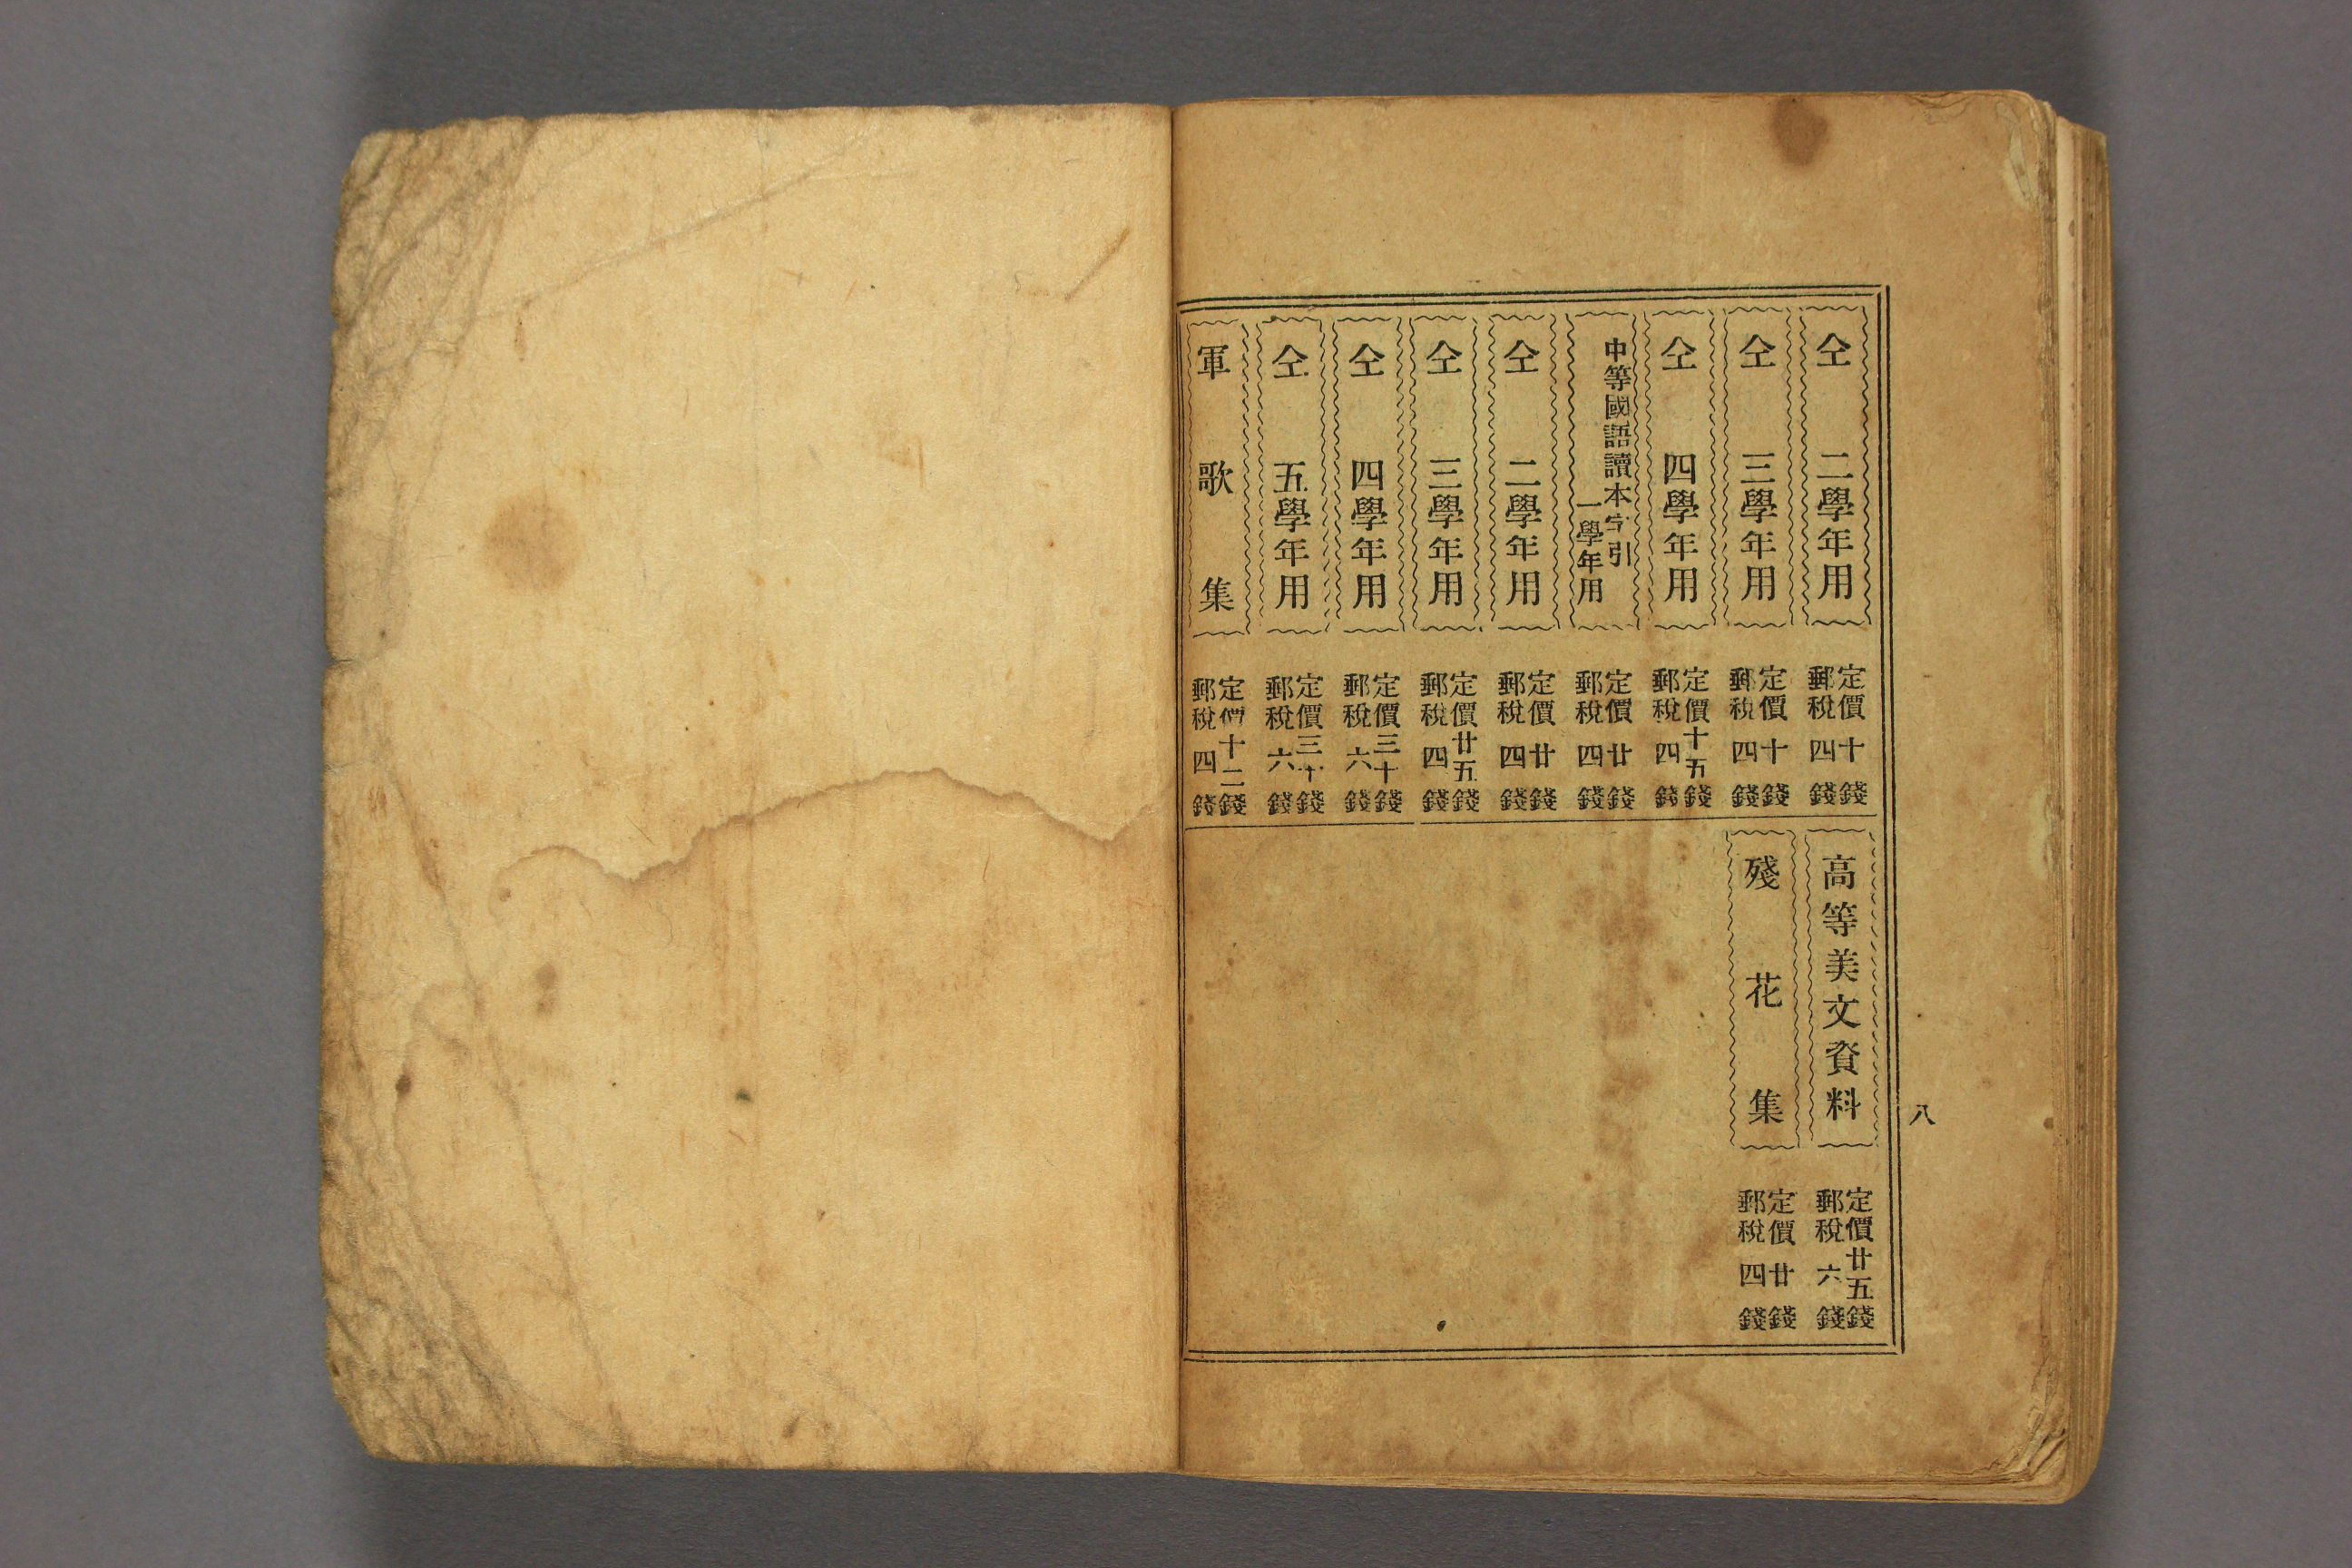 仝 二學年用 定價十錢 郵稅四錢
仝 三學年用 定價十錢 郵稅四錢
仝 四學年用 定價十五錢 郵稅四錢
中等國語讀本字引 一學年用 定價廿錢 郵稅四錢
仝 二學年用 定價廿錢 郵稅四錢
仝 三學年用 定價廿五錢 郵稅四錢
仝 四學年用 定價三十錢 郵稅六錢
仝 五學年用 定價三十錢 郵稅六錢
軍歌集 定價十二錢 郵稅四錢
高等美文資料 定價廿五錢 郵稅六錢
殘花集 定價廿錢 郵稅四錢
八